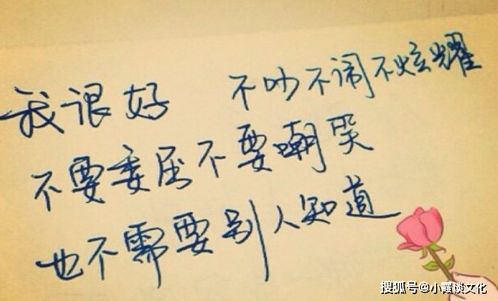 我很好 不吵不闹不炫耀
不要委屈不要嘲笑
也不需要别人知道
搜狐号@小谈文化